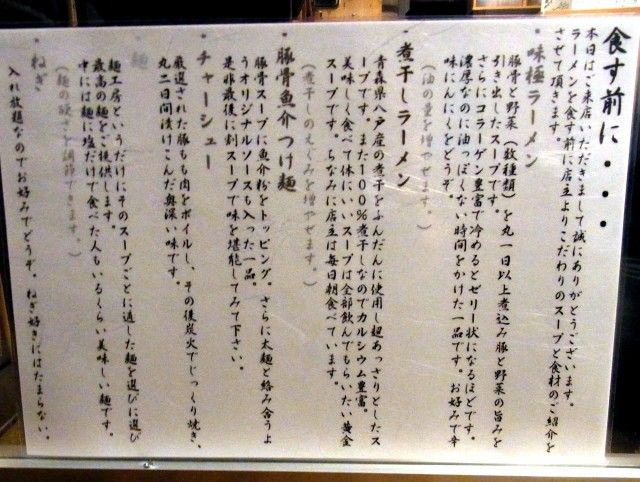 食す前に・・・
本日はご来店いただきまして誠にありがとうございます。
ラーメンを食す前に店主よりこだわりのスープと食材のご紹介を
させて頂きます。
・味極ラーメン
豚骨と野菜(数種類)を丸一日以上煮込み豚と野菜の旨みを
引き出したスープです。
さらにコラーゲン豊富で冷めるとゼリー状になるほどです。
濃厚なのに油っぽくない時間をかけた一品です。お好みで辛
味にんにくをどうぞ。
(油の量を増やせます。)
・煮干しラーメン
青森県八戸産の煮干をふんだんに使用し超あっさりとしたス
ープです。また100%煮干しなのでカルシウム豊富。
美味しく食べて体にいいスープは全部飲んでもらいたい黄金
スープです。ちなみに店主は毎日朝食べています。
(煮干しのえぐみを増やせます。)
・豚骨魚介つけ麺
豚骨スープに魚介粉をトッピング。さらに太麺と絡み合うよ
うオリジナルソースも入った一品。
是非最後に割スープで味を堪能してみて下さい。
・チャーシュー
厳選された豚もも肉をボイルし、その後炭火でじっくり焼き、
丸二日間漬けこんだ奥深い味です。
・麺
麺工房というだけにそのスープごとに適した麺を選びに選び
最高の麺をご提供します。
中には麺に塩だけで食べた人もいるくらい美味しい麺です。
(麺の硬さを調節できます。)
・ねぎ
入れ放題なのでお好みでどうぞ。ねぎ好きにはたまらない。